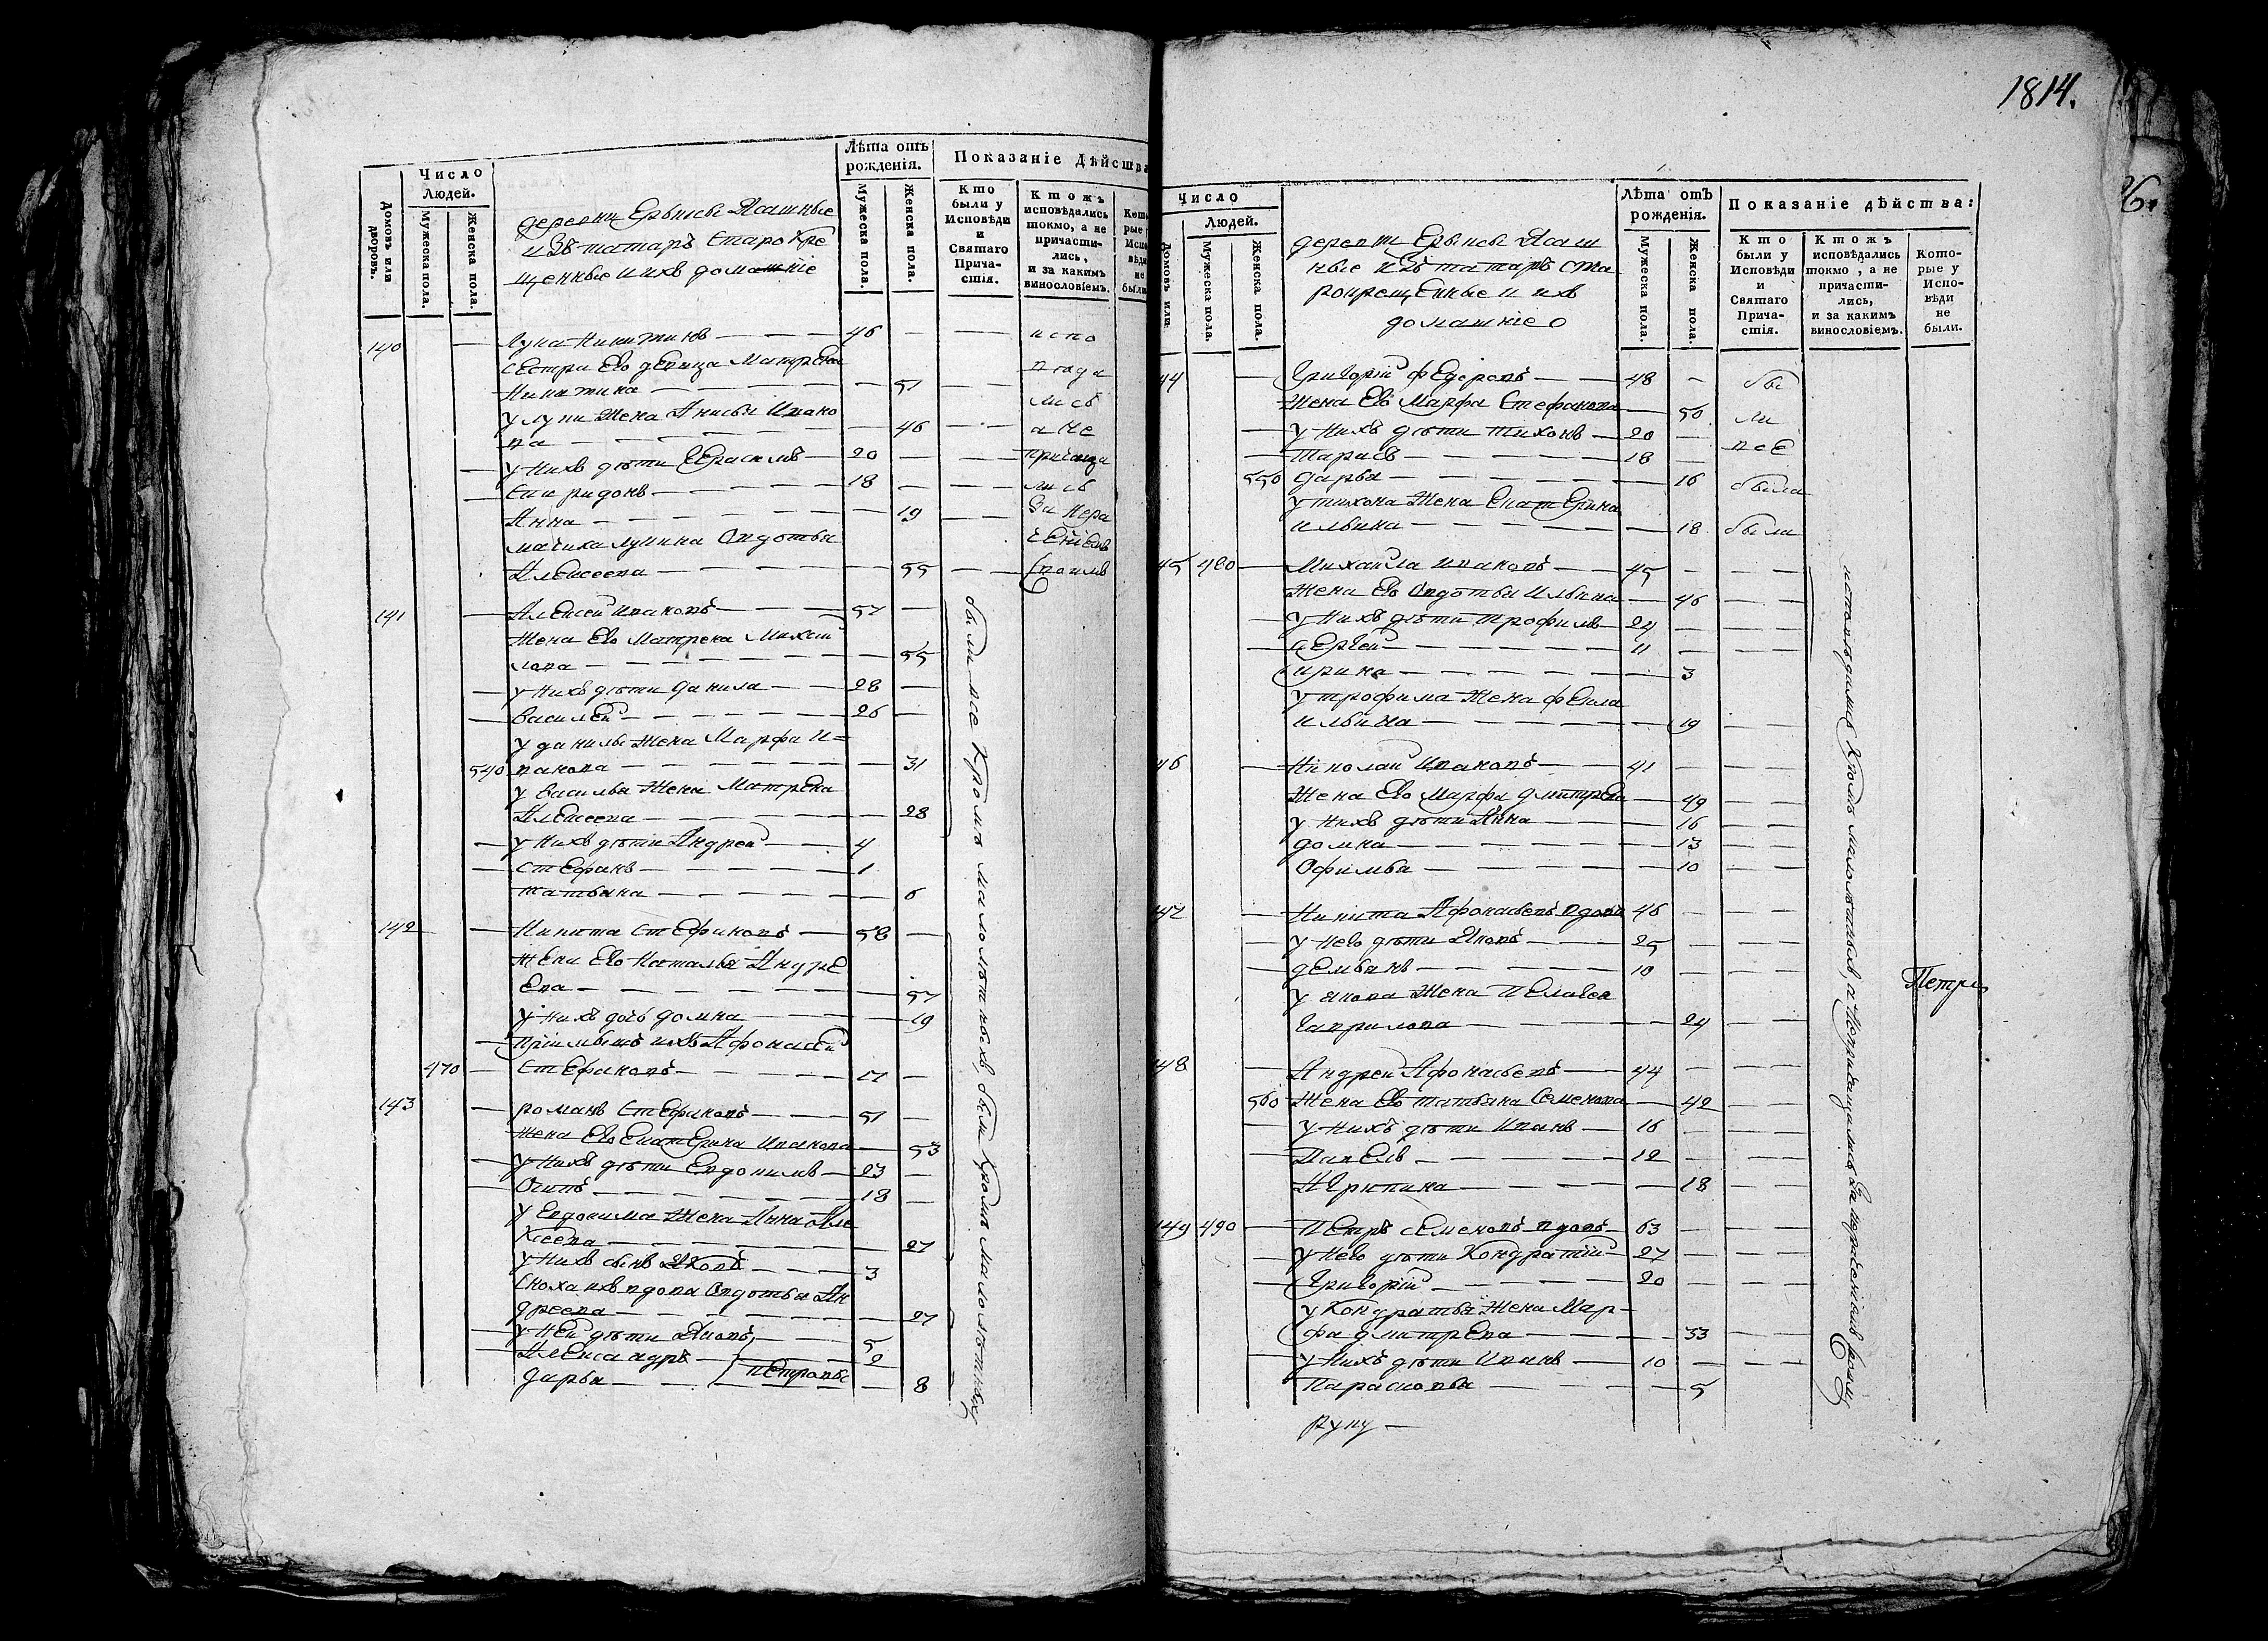 Число
Людей.
Лѣта отъ
рожденія.
Показаніе Дѣйства
Домовъ или дворовъ.
Мужеска пола.
Женска пола.
деревни Ерыксы Ясашные
изъ татаръ старокре
щенные и ихъ домашніе
Мужеска пола.
Женска пола.
Кто были у Исповѣди и Святаго Прича- стія.
Ктожъ исповѣдались токмо, а не причасти- лись, и за какимъ винословіемъ.
140 Лука Никитинъ 46 испо
Сестра Его девица Матрена
Никитина 51
у луки жена Анисья Ивано
ва 46 а не
у нихъ дѣти Герасимъ 20 приоща
Спиридонъ 18 лись
Анна 19 За нера
мачиха лукина Овдотья ченіемъ
Алексеева 55 своимъ
141 Алексей Ивановъ 57
Жена Его Матрена Михай
лова 55
у нихъ дѣти Данила 28
Василей 26
у данилы жена Марфа И=
540 ванова 31
у Василья жена Матрена
Алексеева 28
у нихъ дѣти Андрей 4
Стефанъ 1
татьяна 6
142 Никита Стефановъ 58
Жена Его Наталья Андре
ева 57
у нихъ дочь домна 19
пріимышъ ихъ Афонасей
470 Стефановъ 17
143 романъ Стефановъ 51
Жена Его Екатерина Иванова 53
у нихъ дѣти Евдокимъ 23
Осипъ 18
у Евдокима жена Анна Але
ксеева 27
у нихъ сынъ Яковъ 3
Сноха ихъ вдова Овдотья Ан
дреева 27
у ней дѣти Яковъ 5
Александръ 2 Петровы
Дарья 8
были все кромѣ малолѣтныхъ, были кромѣ малолѣтныхъ
1814.
Число
Людей.
Лѣта отъ
рожденія.
Показаніе дѣйства:
Домовъ или
Мужеска пола.
Женска пола.
деревни Ерыксы Ясаш
ные изъ татаръ ста
рокрещенные и ихъ
домашніе
Мужеска пола.
Женска пола.
Кто были у Исповѣди и Святаго Прича- стія.
Ктожъ исповѣдались токмо, а не причасти- лись, и за какимъ винословіемъ.
Кото- рые у Испо- вѣди не были.
44 Григорій Федоровъ 48 бы
Жена Его Марфа Стефанова 50 ли
у нихъ дѣти тихонъ 20 все
тарасъ 18
550 дарья 16 была
у тихона Жена Екатерина
ильина 18 была
45 480 Михайла Ивановъ 45
Жена Его Овдотья Ильина 46
у нихъ дѣти трофимъ 24
Сергей 11
ирина 3
у трофима жена фекла
ильина 19
46 Николай Ивановъ 41
Жена Его Марфа дмитрева 49
у нихъ дѣти Анна 16
домна 13
Офимья 10
47 Никита Афонасьевъ вдовъ 46
у него дѣти Яковъ 25
демьянъ 10
у якова жена Пелагея
гаврилова 24
48 Андрей Афонасьевъ 44
560 Жена Его татьяна Семенова 42
у нихъ дѣти Иванъ 16
Павелъ 12
Агрипина 18
149 490 Петръ Семеновъ вдовъ 63
у него дѣти Кондратій 27
Григорій 20
у Кондратья жена Мар-
фа дмитрева 33
у нихъ дѣти Иванъ 10
Парасковья 5
руку
исповѣдались кромѣ малолѣтныхъ, а неприощались за нераченіемъ своимъ
Петръ